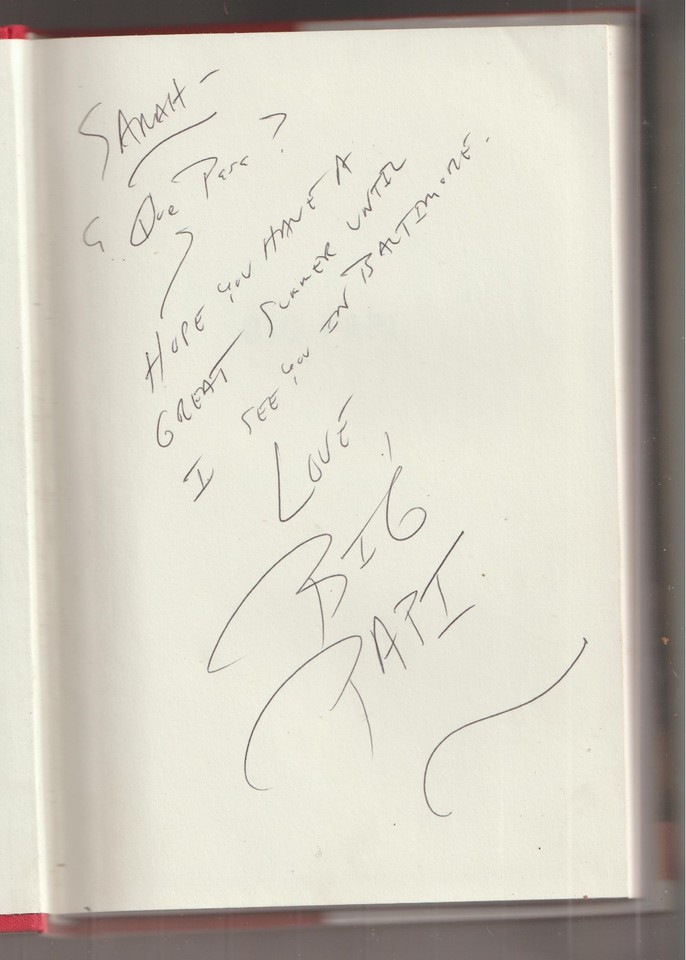 SARAH -
¿ Que Pasa ?
HOPE you HAVE A
GREAT SUMMER UNTIL
I SEE you IN BALTIMORE.
LOVE,
BIG
PAPI